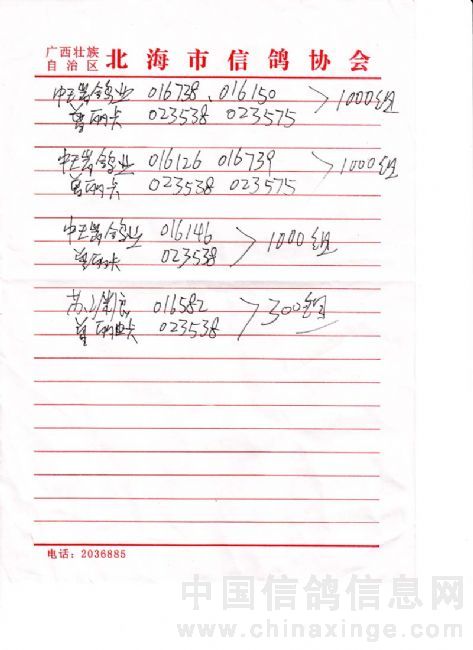 广西壮族
自治区 北海市信鸽协会
中王岩鸽业 016738、016150 >1000组
曾丽卡 023538 023575
中王岩鸽业 016126 016739 >1000组
曾丽卡 023538 023575
中王岩鸽业 016146 >1000组
曾丽卡 023538
苏 016582 >300组
曾丽卡 023538
电话：2036885
中国信鸽信息网
www.chinaxinge.com